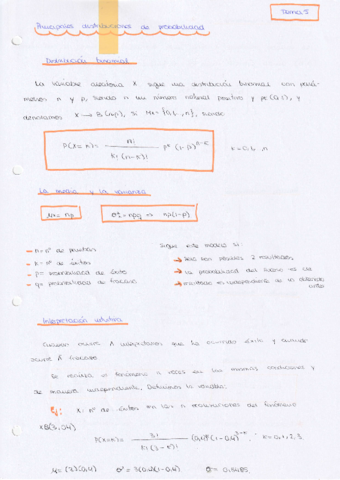 Tema 5
Principales distribuciones de probabilidad
Distribución binomial
La variable aleatoria X sigue una distribución binomial con pará-
metros n y p, siendo n un número natural positivo y p∈(0,1), y
denotamos X → B(n,p), si Mx={0,1,..,n}, siendo
P(X=k)= n! / k!(n-k)! p^k (1-p)^n-k k=0,1,..,n
La media y la varianza
μ= np σ²=npq => np(1-p)
n= nº de pruebas
k= nº de éxitos
p= probabilidad de éxito
q= probabilidad de fracaso
Sigue este modelo si:
→ Solo son posibles 2 resultados
→ La probabilidad del suceso es cte
→ resultado es independiente de
Interpretación intuitiva
Cuando ocurre A aceptamos que ha ocurrido éxito y cuando
ocurre B fracaso
Se realiza el fenómeno n veces en las mismas condiciones y
de manera independiente. Definimos la variable:
Ej: X: nº de éxitos en las n realizaciones del fenómeno
XB(3, 0,4)
P(X=k)= 3! / k!(3-k)! (0,4)^k(1-0,4)^3-k, k=0,1,2,3
μ=(3)(0,4) σ²=3(0,4)(1-0,4) σ=0,8485